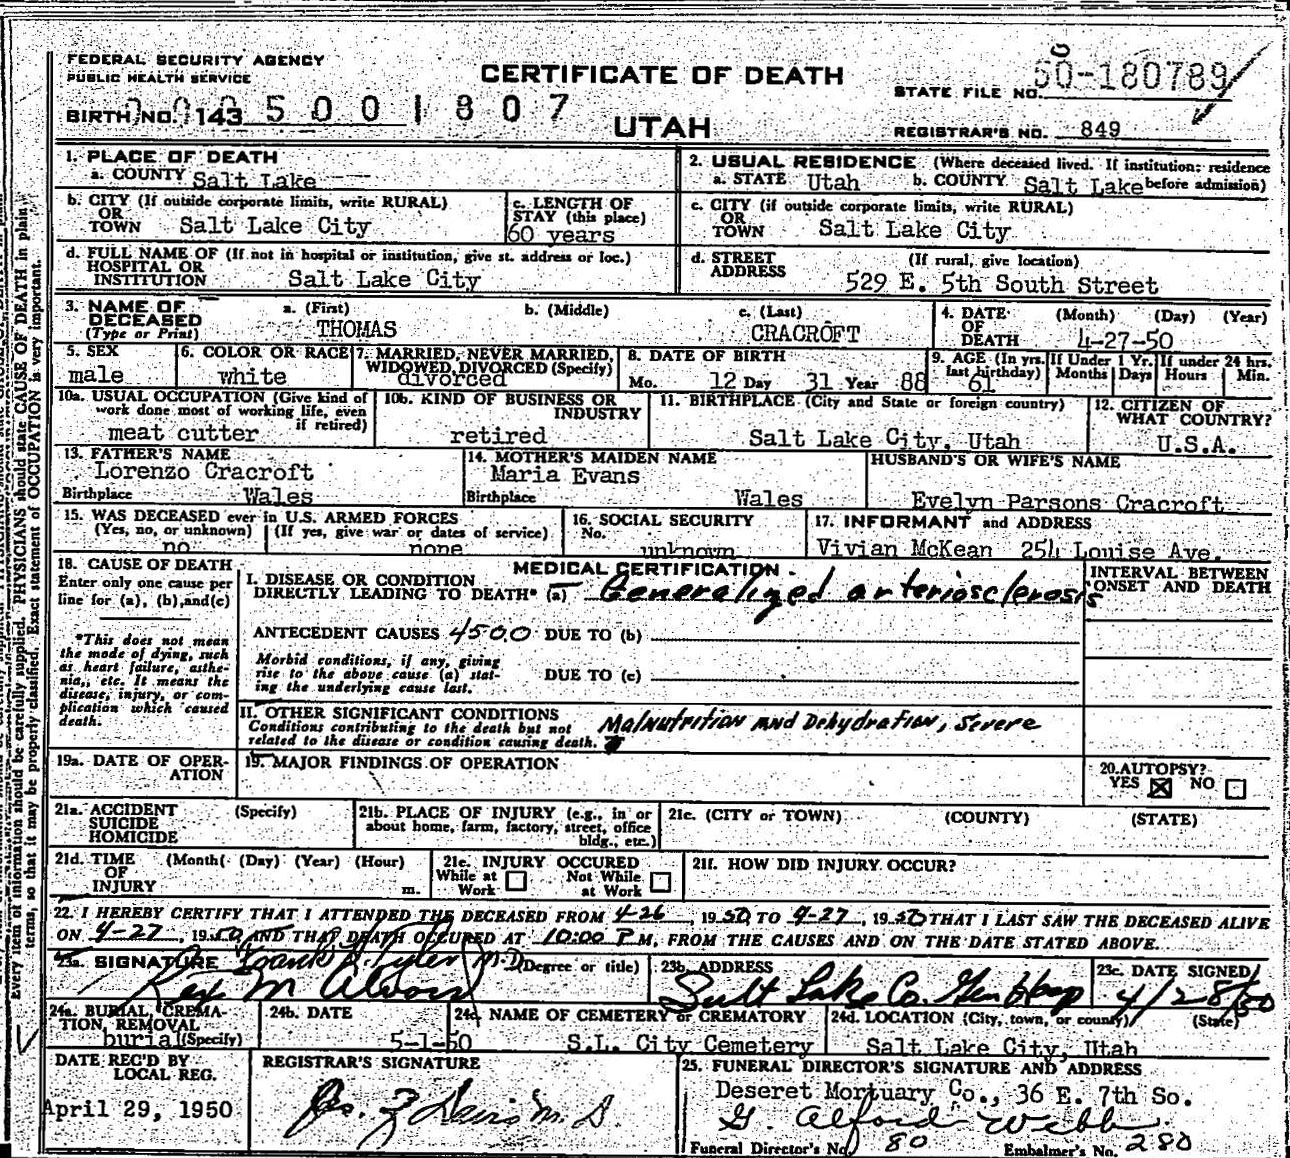 FEDERAL SECURITY AGENCY
PUBLIC HEALTH SERVICE
CERTIFICATE OF DEATH
UTAH
STATE FILE NO. 50-180789
BIRTH NO. 143 5001807
REGISTRAR'S NO. 849
1. PLACE OF DEATH
a. COUNTY Salt Lake
2. USUAL RESIDENCE (Where deceased lived. If institution: residence before admission)
a. STATE Utah b. COUNTY Salt Lake
b. CITY (If outside corporate limits, write RURAL)
OR
TOWN Salt Lake City
c. LENGTH OF
STAY (this place)
60 years
c. CITY (if outside corporate limits, write RURAL)
OR
TOWN Salt Lake City
d. FULL NAME OF (If not in hospital or institution, give st. address or loc.)
HOSPITAL OR
INSTITUTION Salt Lake City
d. STREET (If rural, give location)
ADDRESS 529 E. 5th South Street
3. NAME OF
DECEASED
(Type or Print)
a. (First) b. (Middle) c. (Last)
THOMAS CRACROFT
4. DATE (Month) (Day) (Year)
OF
DEATH 4-27-50
5. SEX
male
6. COLOR OR RACE
white
7. MARRIED, NEVER MARRIED,
WIDOWED, DIVORCED (Specify)
divorced
8. DATE OF BIRTH
Mo. 12 Day 31 Year 88
9. AGE (In yrs. last birthday)
61
If Under 1 Yr.
Months Days
If under 24 hrs.
Hours Min.
10a. USUAL OCCUPATION (Give kind of
work done most of working life, even
if retired)
meat cutter
10b. KIND OF BUSINESS OR
INDUSTRY
retired
11. BIRTHPLACE (City and State or foreign country)
Salt Lake City, Utah
12. CITIZEN OF
WHAT COUNTRY?
U.S.A.
13. FATHER'S NAME
Lorenzo Cracroft
Birthplace Wales
14. MOTHER'S MAIDEN NAME
Maria Evans
Birthplace Wales
HUSBAND'S OR WIFE'S NAME
Evelyn Parsons Cracroft
15. WAS DECEASED ever in U.S. ARMED FORCES
(Yes, no, or unknown) (If yes, give war or dates of service)
no none
16. SOCIAL SECURITY
No. unknown
17. INFORMANT and ADDRESS
Vivian McKean 254 Louise Ave.
18. CAUSE OF DEATH
Enter only one cause per
line for (a), (b), and (c)
*This does not mean
the mode of dying, such
as heart failure, asthe-
nia, etc. It means the
disease, injury, or com-
plication which caused
death.
MEDICAL CERTIFICATION
I. DISEASE OR CONDITION
DIRECTLY LEADING TO DEATH* (a) Generalized arteriosclerosis
INTERVAL BETWEEN
ONSET AND DEATH
ANTECEDENT CAUSES 4500 DUE TO (b)
Morbid conditions, if any, giving
rise to the above cause (a) stat-
ing the underlying cause last.
DUE TO (c)
II. OTHER SIGNIFICANT CONDITIONS
Conditions contributing to the death but not
related to the disease or condition causing death.
Malnutrition and Dehydration, Severe
19a. DATE OF OPER-
ATION
19. MAJOR FINDINGS OF OPERATION
20. AUTOPSY?
YES ☒ NO ☐
21a. ACCIDENT (Specify)
SUICIDE
HOMICIDE
21b. PLACE OF INJURY (e.g., in or
about home, farm, factory, street, office
bldg., etc.)
21c. (CITY or TOWN) (COUNTY) (STATE)
21d. TIME (Month) (Day) (Year) (Hour)
OF
INJURY m.
21e. INJURY OCCURED
While at Work ☐ Not While at Work ☐
21f. HOW DID INJURY OCCUR?
22. I HEREBY CERTIFY THAT I ATTENDED THE DECEASED FROM 4-26, 1950 TO 4-27, 1950 THAT I LAST SAW THE DECEASED ALIVE
ON 4-27, 1950 AND THAT DEATH OCCURED AT 10:00 P M, FROM THE CAUSES AND ON THE DATE STATED ABOVE.
23a. SIGNATURE Frank H. Tyler M.D. (Degree or title)
Rex M
23b. ADDRESS
Salt Lake Co. Gen Hosp
23c. DATE SIGNED
4/28/50
24a. BURIAL, CREMA-
TION, REMOVAL
burial (Specify)
24b. DATE
5-1-50
24c. NAME OF CEMETERY or CREMATORY
S.L. City Cemetery
24d. LOCATION (City, town, or county) (State)
Salt Lake City, Utah
DATE REC'D BY
LOCAL REG.
April 29, 1950
REGISTRAR'S SIGNATURE
25. FUNERAL DIRECTOR'S SIGNATURE AND ADDRESS
Deseret Mortuary Co., 36 E. 7th So.
G. Alford Webb
Funeral Director's No. 80 Embalmer's No. 280
Every item of information should be carefully supplied. PHYSICIANS should state CAUSE OF DEATH in plain
terms, so that it may be properly classified. Exact statement of OCCUPATION is very important.